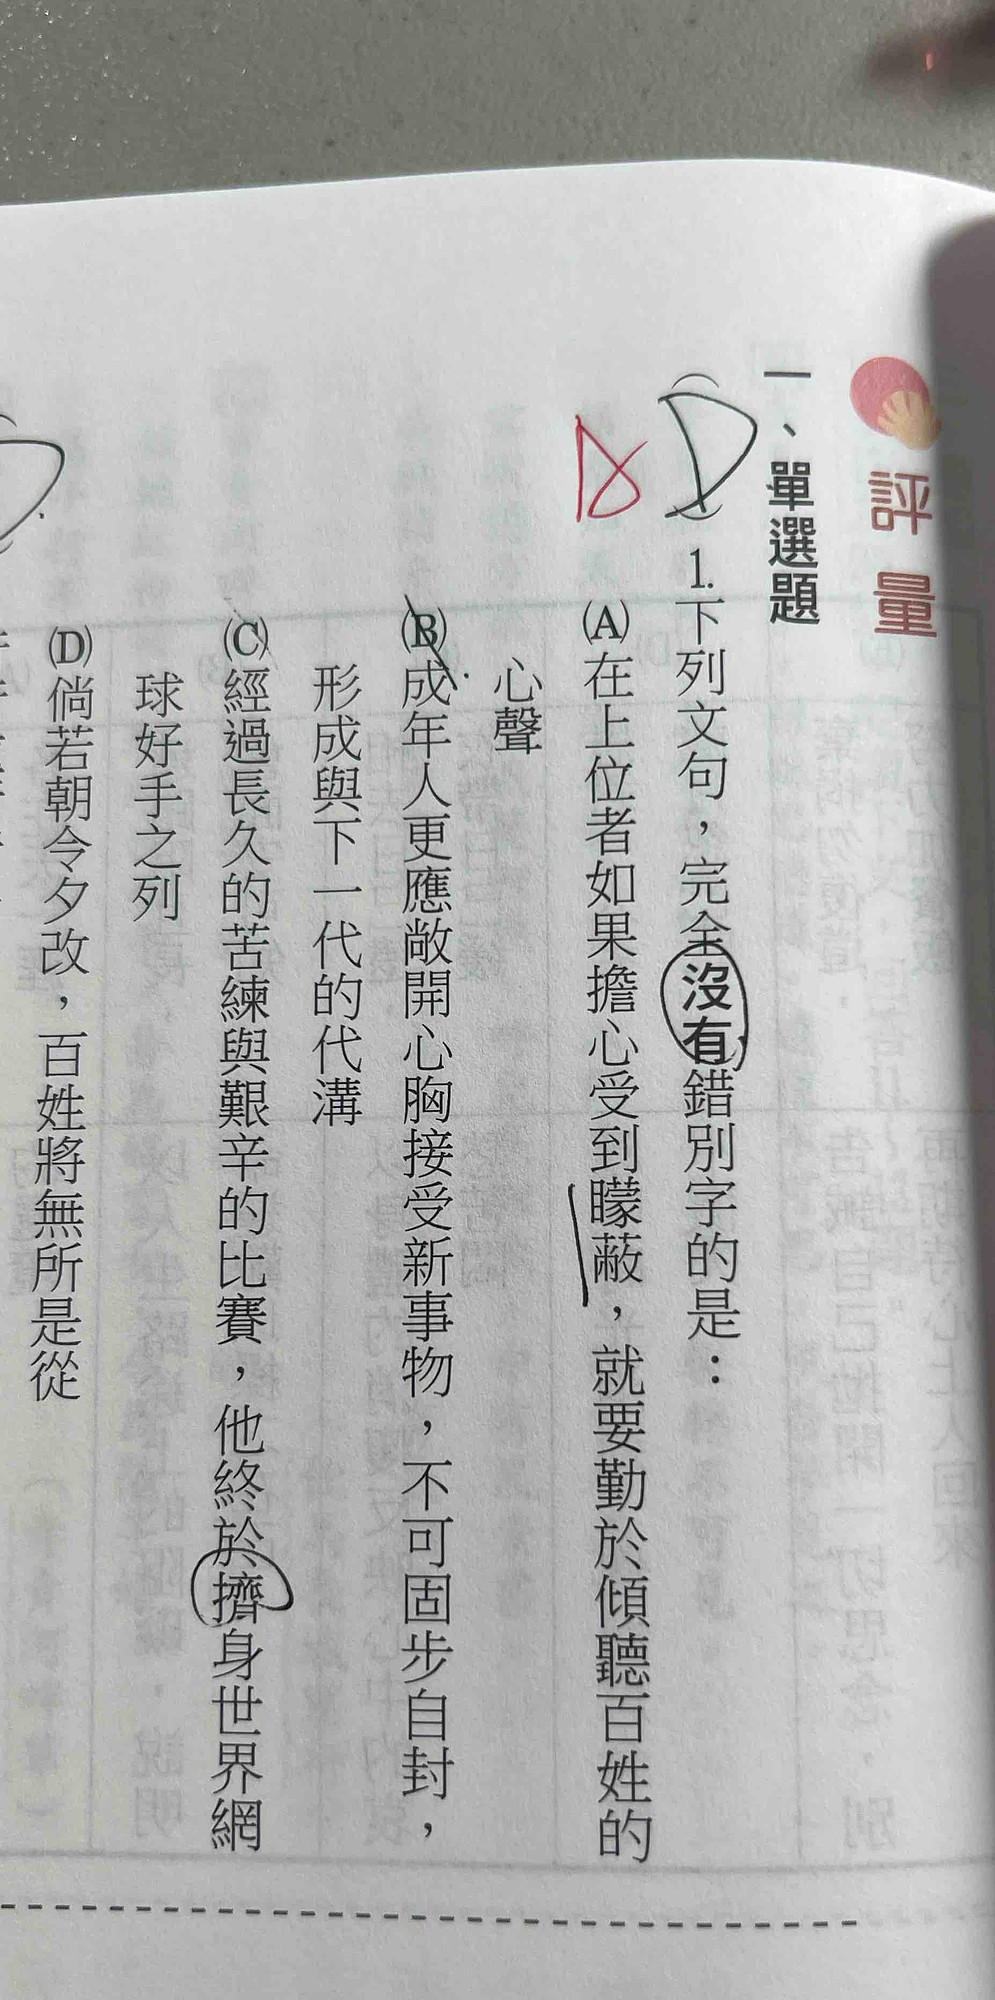 評量
一、單選題
D
B
1.下列文句，完全沒有錯別字的是：
(A)在上位者如果擔心受到矇蔽，就要勤於傾聽百姓的
心聲
(B)成年人更應敞開心胸接受新事物，不可固步自封，
形成與下一代的代溝
(C)經過長久的苦練與艱辛的比賽，他終於擠身世界網
球好手之列
(D)倘若朝令夕改，百姓將無所是從